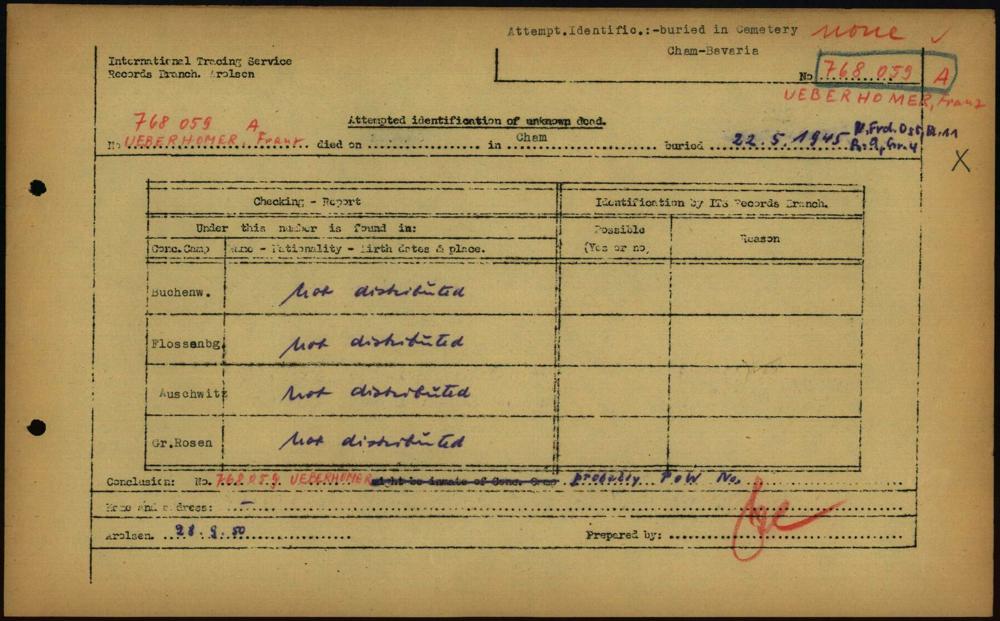 Attempt.Identific.:-buried in Cemetery none ✓
Cham-Bavaria
International Tracing Service
Records Branch. Arolsen
No 768 059 A
UEBERHOMER, Franz
768 059 A
Attempted identification of unknown dead.
No UEBERHOMER, Franz died on in Cham buried 22.5.1945
X
Checking - Report
Identification by ITS Records Branch.
Under this number is found in:
Possible
(Yes or no)
Reason
Conc.Camp Name - Nationality - Birth dates & place.
Buchenw. not distributed
Flossenbg. not distributed
Auschwitz not distributed
Gr.Rosen not distributed
Conclusion: No. 768059 UEBERHOMER might be inmate of Conc. Camp probably PoW No.
Name and address: -
Arolsen. 28.9.50 Prepared by: